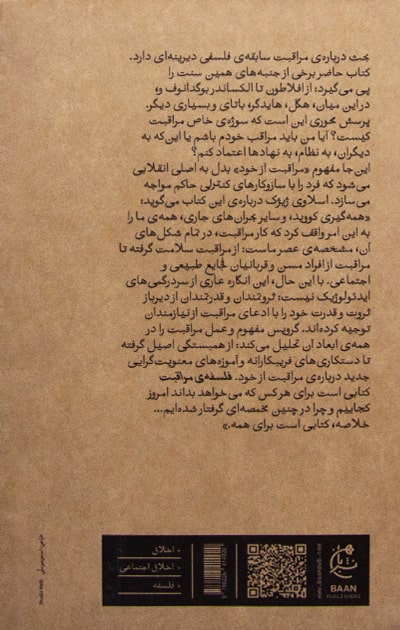 بحث درباره‌ی مراقبت سابقه‌ی فلسفی دیرینه‌ای دارد.
کتاب حاضر برخی از جنبه‌های همین سنت را
پی می‌گیرد: از افلاطون تا الکساندر بوگدانوف و،
در این میان، هگل، هایدگر، باتای و بسیاری دیگر.
پرسش محوری این است که سوژه‌ی خاص مراقبت
کیست؟ آیا من باید مراقب خودم باشم یا این‌که به
دیگران، به نظام، به نهادها اعتماد کنم؟
این‌جا مفهوم «مراقبت از خود» بدل به اصلی انقلابی
می‌شود که فرد را با سازوکارهای کنترلی حاکم مواجه
می‌سازد. اسلاوی ژیژک درباره‌ی این کتاب می‌گوید:
«همه‌گیری کووید، و سایر بحران‌های جاری، همه‌ی ما را
به این امر واقف کرد که کار مراقبت، در تمام شکل‌های
آن، مشخصه‌ی عصر ماست: از مراقبت سلامت گرفته تا
مراقبت از افراد مسن و قربانیان فجایع طبیعی و
اجتماعی. با این حال، این انگاره عاری از سردرگمی‌های
ایدئولوژیک نیست: ثروتمندان و قدرتمندان از دیرباز
ثروت و قدرت خود را با ادعای مراقبت از نیازمندان
توجیه کرده‌اند. گرویس مفهوم و عمل مراقبت را در
همه‌ی ابعاد آن تحلیل می‌کند: از همبستگی اصیل گرفته
تا دستکاری‌های فریبکارانه و آموزه‌های معنویت‌گرایی
جدید درباره‌ی مراقبت از خود. فلسفه‌ی مراقبت
کتابی است برای هر کس که می‌خواهد بداند امروز
کجاییم و چرا در چنین مخمصه‌ای گرفتار شده‌ایم...
خلاصه، کتابی است برای همه.»
• اخلاق
• اخلاق اجتماعی
• فلسفه
BAAN
PUBLISHERS